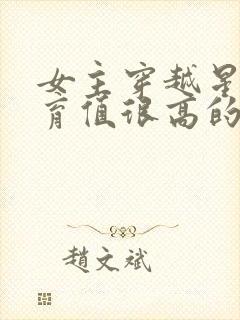 女主穿越星
育值很高的
趙文斌